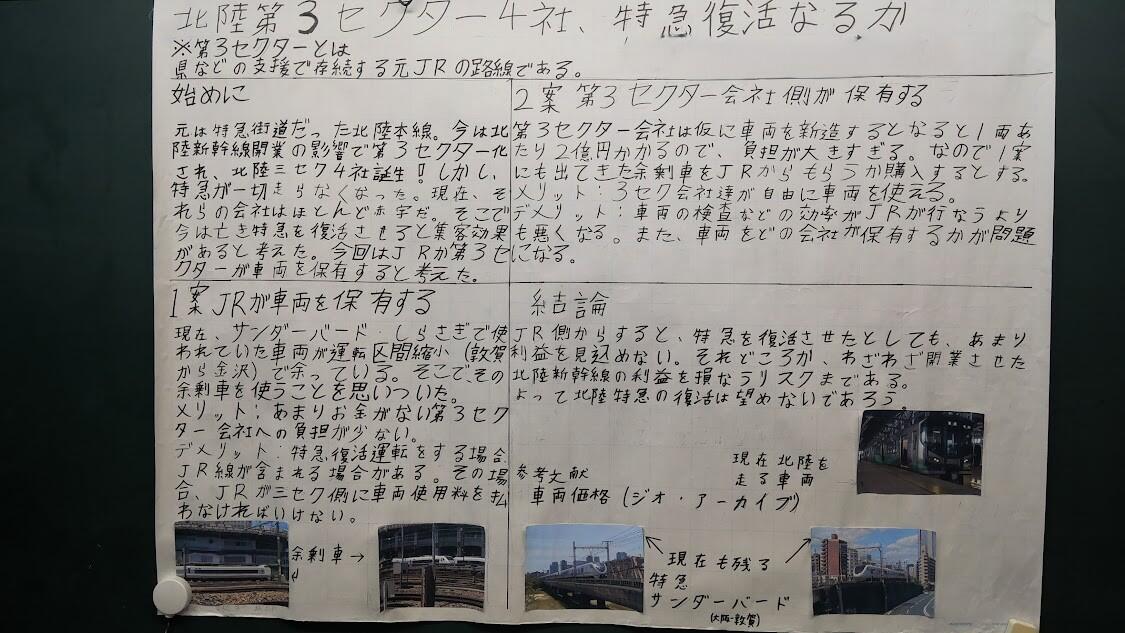 北陸第3セクター4社、特急復活なるか
※第3セクターとは
県などの支援で存続する元JRの路線である。
始めに
元は特急街道だった北陸本線。今は北
陸新幹線開業の影響で第3セクター化
され、北陸三セク4社誕生!しかし、
特急が一切走らなくなった。現在、そ
れらの会社はほとんど赤字だ。そこで
今は亡き特急を復活させると集客効果
があると考えた。今回はJRか第3セ
クターが車両を保有すると考えた。
1案 JRが車両を保有する
現在、サンダーバード・しらさぎで使
われていた車両が運転区間縮小(敦賀
から金沢)で余っている。そこで、その
余剰車を使うことを思いついた。
メリット:あまりお金がない第3セク
ター会社への負担が少ない。
デメリット:特急復活運転をする場合
JR線が含まれる場合がある。その場
合、JRが三セク側に車両使用料を払
わなければいけない。
余剰車→
2案 第3セクター会社側が保有する
第3セクター会社は仮に車両を新造するとなると1両あ
たり2億円かかるので、負担が大きすぎる。なので1案
にも出てきた余剰車をJRからもらうか購入するとする。
メリット:3セク会社達が自由に車両を使える。
デメリット:車両の検査などの効率がJRが行なうより
も悪くなる。また、車両をどの会社が保有するかが問題
になる。
結論
JR側からすると、特急を復活させたとしても、あまり
利益を見込めない。それどころか、わざわざ開業させた
北陸新幹線の利益を損なうリスクまである。
よって北陸特急の復活は望めないであろう。
現在北陸を
走る車両
参考文献
車両価格(ジオ・アーカイブ)
現在も残る
特急
サンダーバード
(大阪-敦賀)